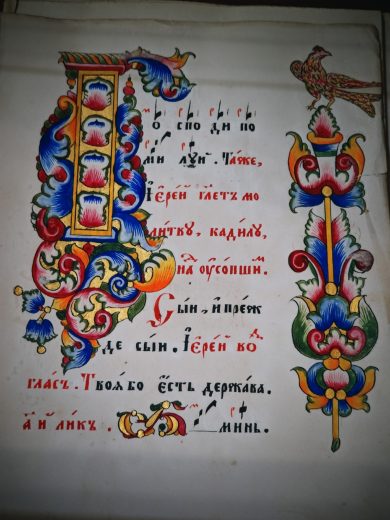 Го спо ди по
ми луй. Та́же,
Іере́й гл҃етъ мо
ли́тву, кади́лу,
на оусо́пшим.
Сы́и, и пре́ж
де сы́и. Іере́й во
гла́съ. Твоя́ бо е́сть держа́ва.
а и ли́къ. Ами́нь.